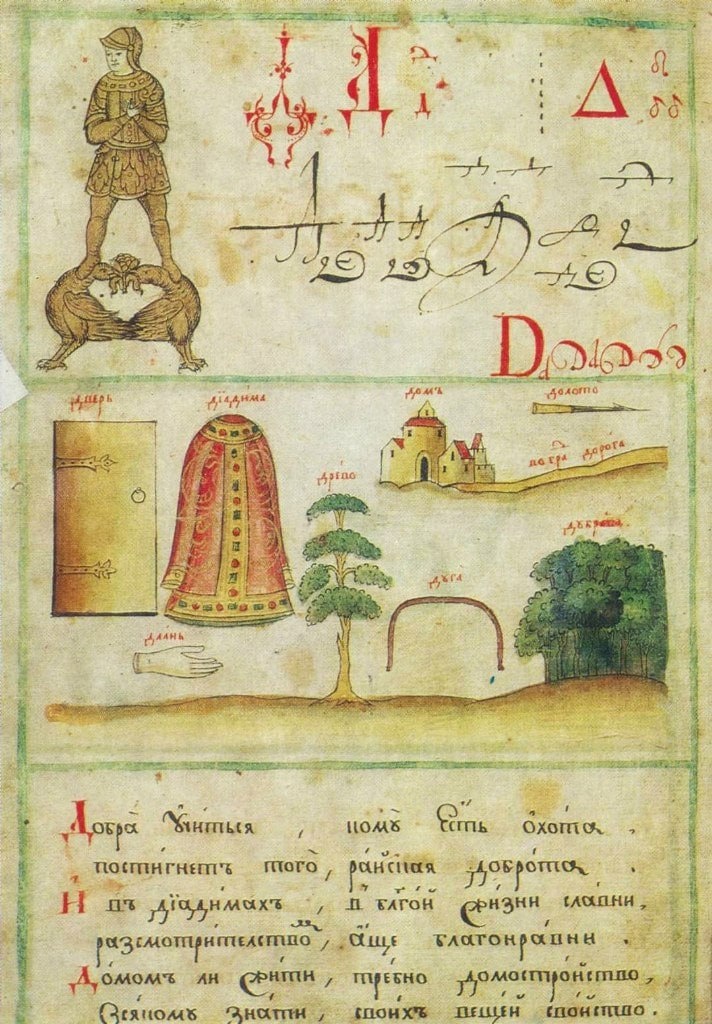 Д Д
Δ
D
дверь дїадима домъ долото
дорога
древо
дꙋбрава
дꙋга
длань
Добра̀ ᲂу҆чи́ться, комꙋ̀ є҆́сть ѻ҆хо́та,
пости́гнетъ того̀, ра́йская добро́та.
И въ дїади́махъ, в бл҃го́й жи́зни сла́вни,
разсмотри́телствоⷨ, а҆́ще благонра́вни.
До́момъ ли жи́ти, тре́бно домостро́йство,
Вся́комꙋ зна́ти, свои́хъ веще́й сво́йство.